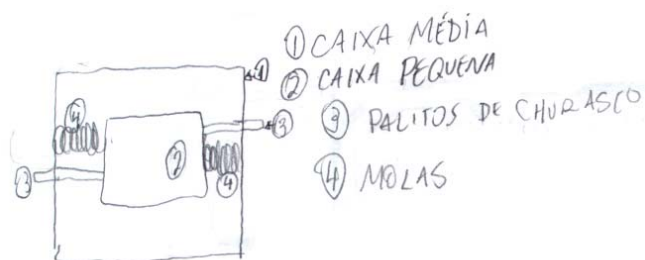 ① CAIXA MÉDIA
② CAIXA PEQUENA
③ PALITOS DE CHURASCO
④ MOLAS
①
④
③
②
③
④